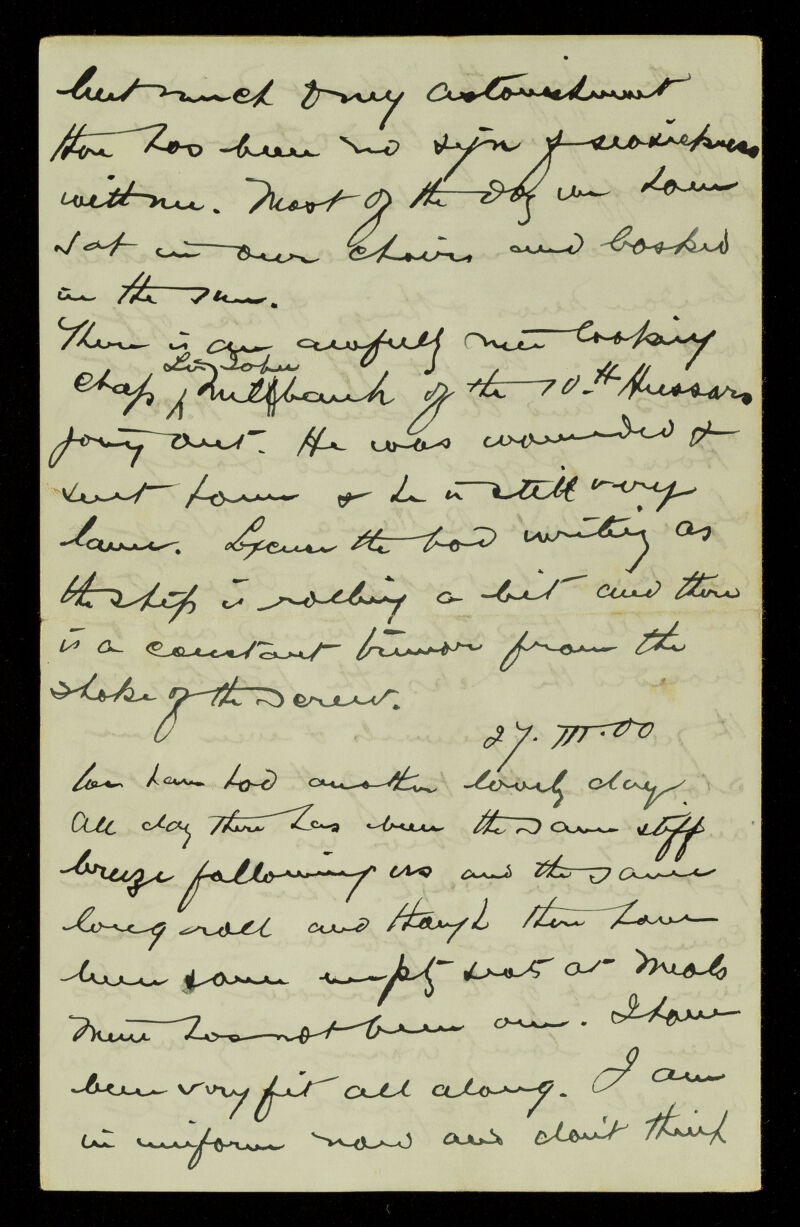 but much to my astonishment
there has been no sign of seasickness
with me. Most of the day we have
sat in our chairs and basked
in the sun.
There is an awfully nice looking
chap Sir John Milbank of the 10th Hussars
going out. He was wounded &
sent home & he is still very
lame. Excuse the bad writing as
the ship is rolling a bit and there
is a constant tremor from the
shake of the screw.
27. III. 00
We have had another lovely day
All day there has been the same stiff
breeze following us and the same
long roll and though there have
been some empty seats at meals
mine has not been one. I have
been very fit all along. I am
in uniform now and don't think